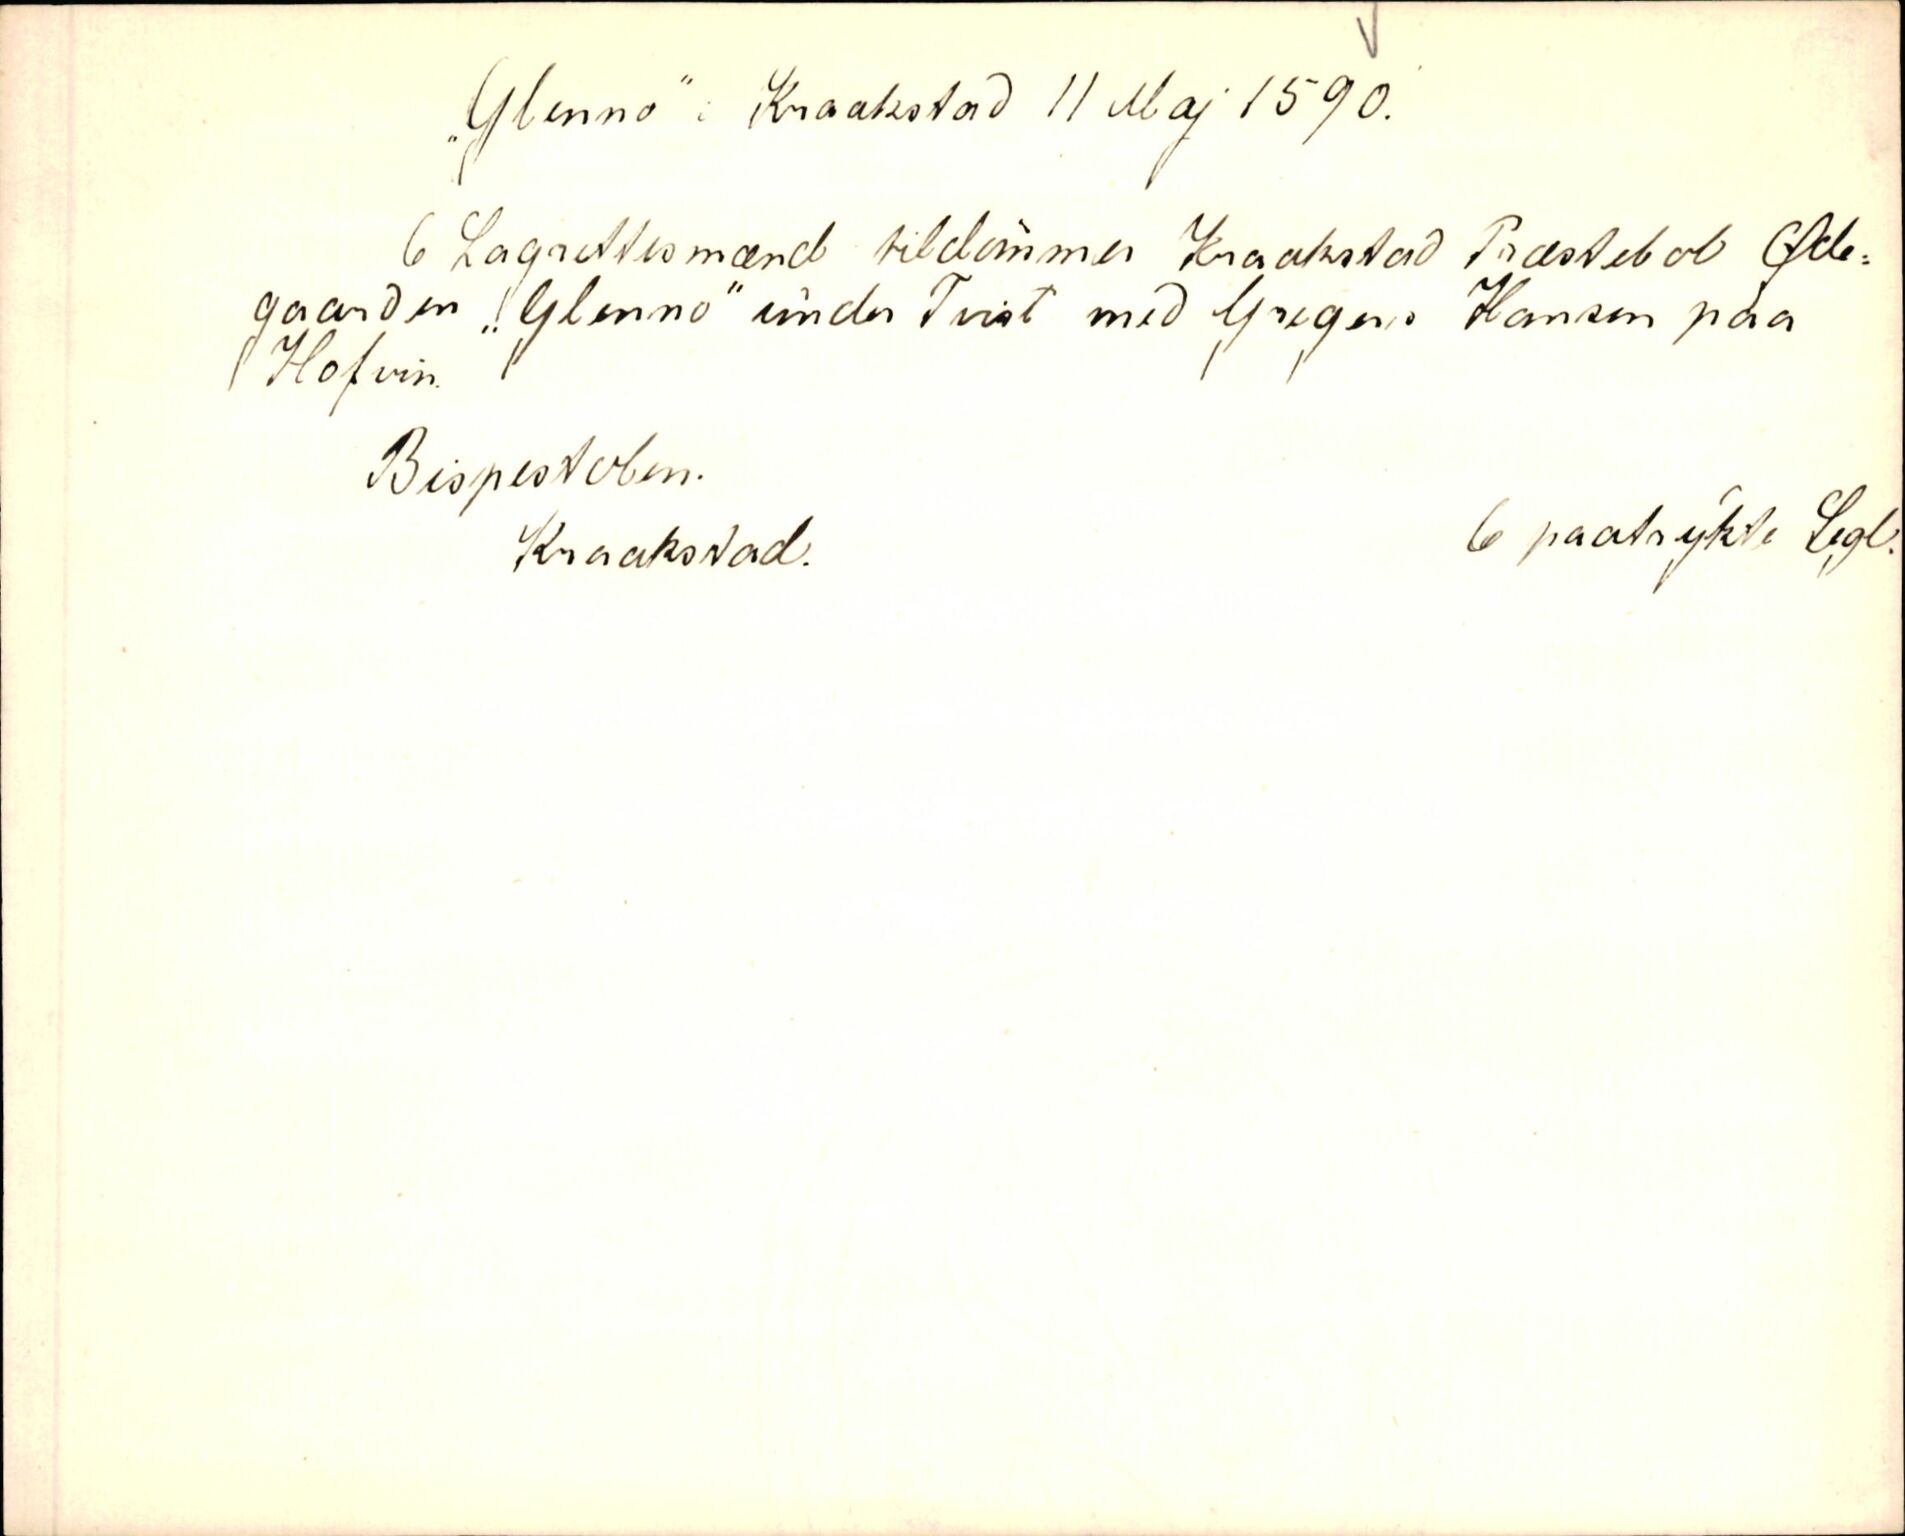 „Glenno" i Kraakstad 11 Maj 1590.
6 Lagrettesmænd tildømmer Kraakstad Præstebol Øde=
gaarden „Glenno" under Tvist med Gregers Hansen paa
Hofvin.
Bispestolen.
Kraakstad.
6 paatrykte Segl.